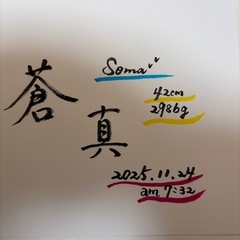 蒼真
Soma
42cm
2986g
2025.11.24
am 7:32